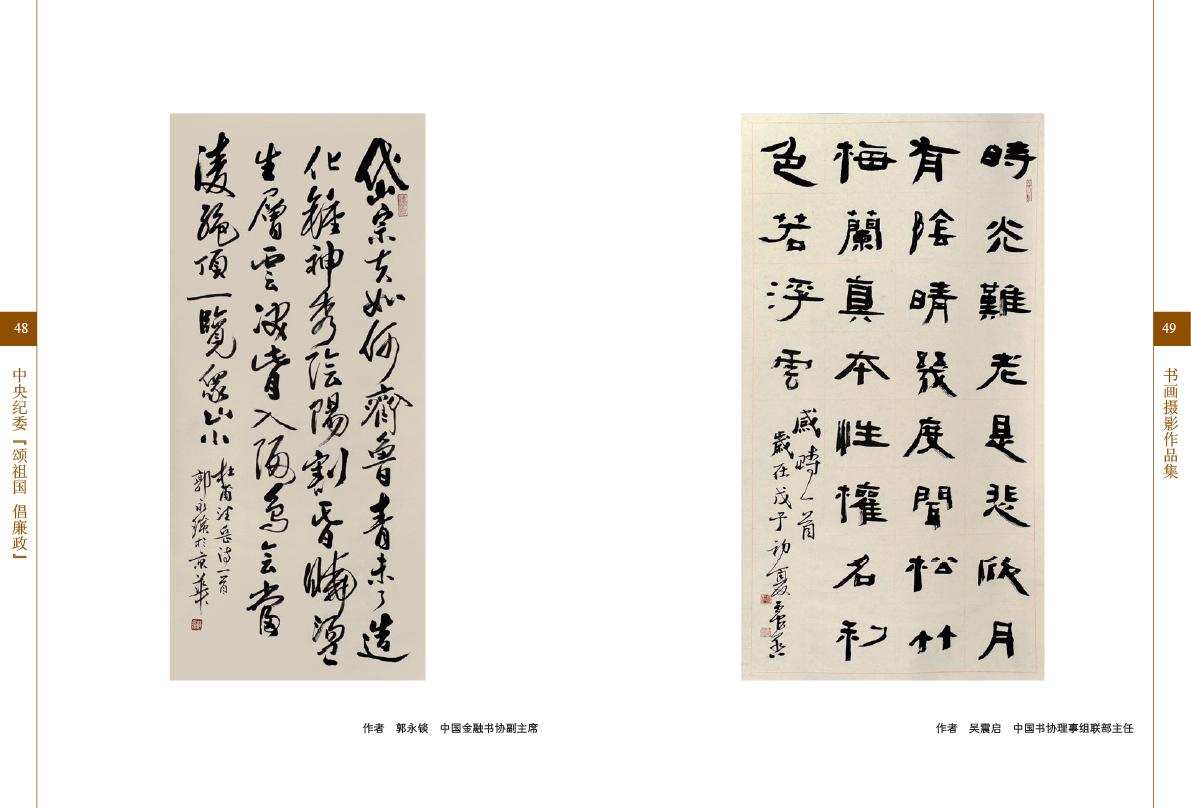 48
中央纪委『颂祖国 倡廉政』
岱宗夫如何齊魯青未了造
化鍾神秀陰陽割昏曉盪
生層雲決眥入歸鳥会當
凌絕頂一覽眾山小
杜甫望岳詩一首
郭永錟於京華
作者 郭永锬 中国金融书协副主席
時光難老是悲欣月
有陰晴幾度聞松竹
梅蘭真本性權名利
色若浮雲
感時一首
歲在戊子初夏震
作者 吴震启 中国书协理事组联部主任
49
书画摄影作品集